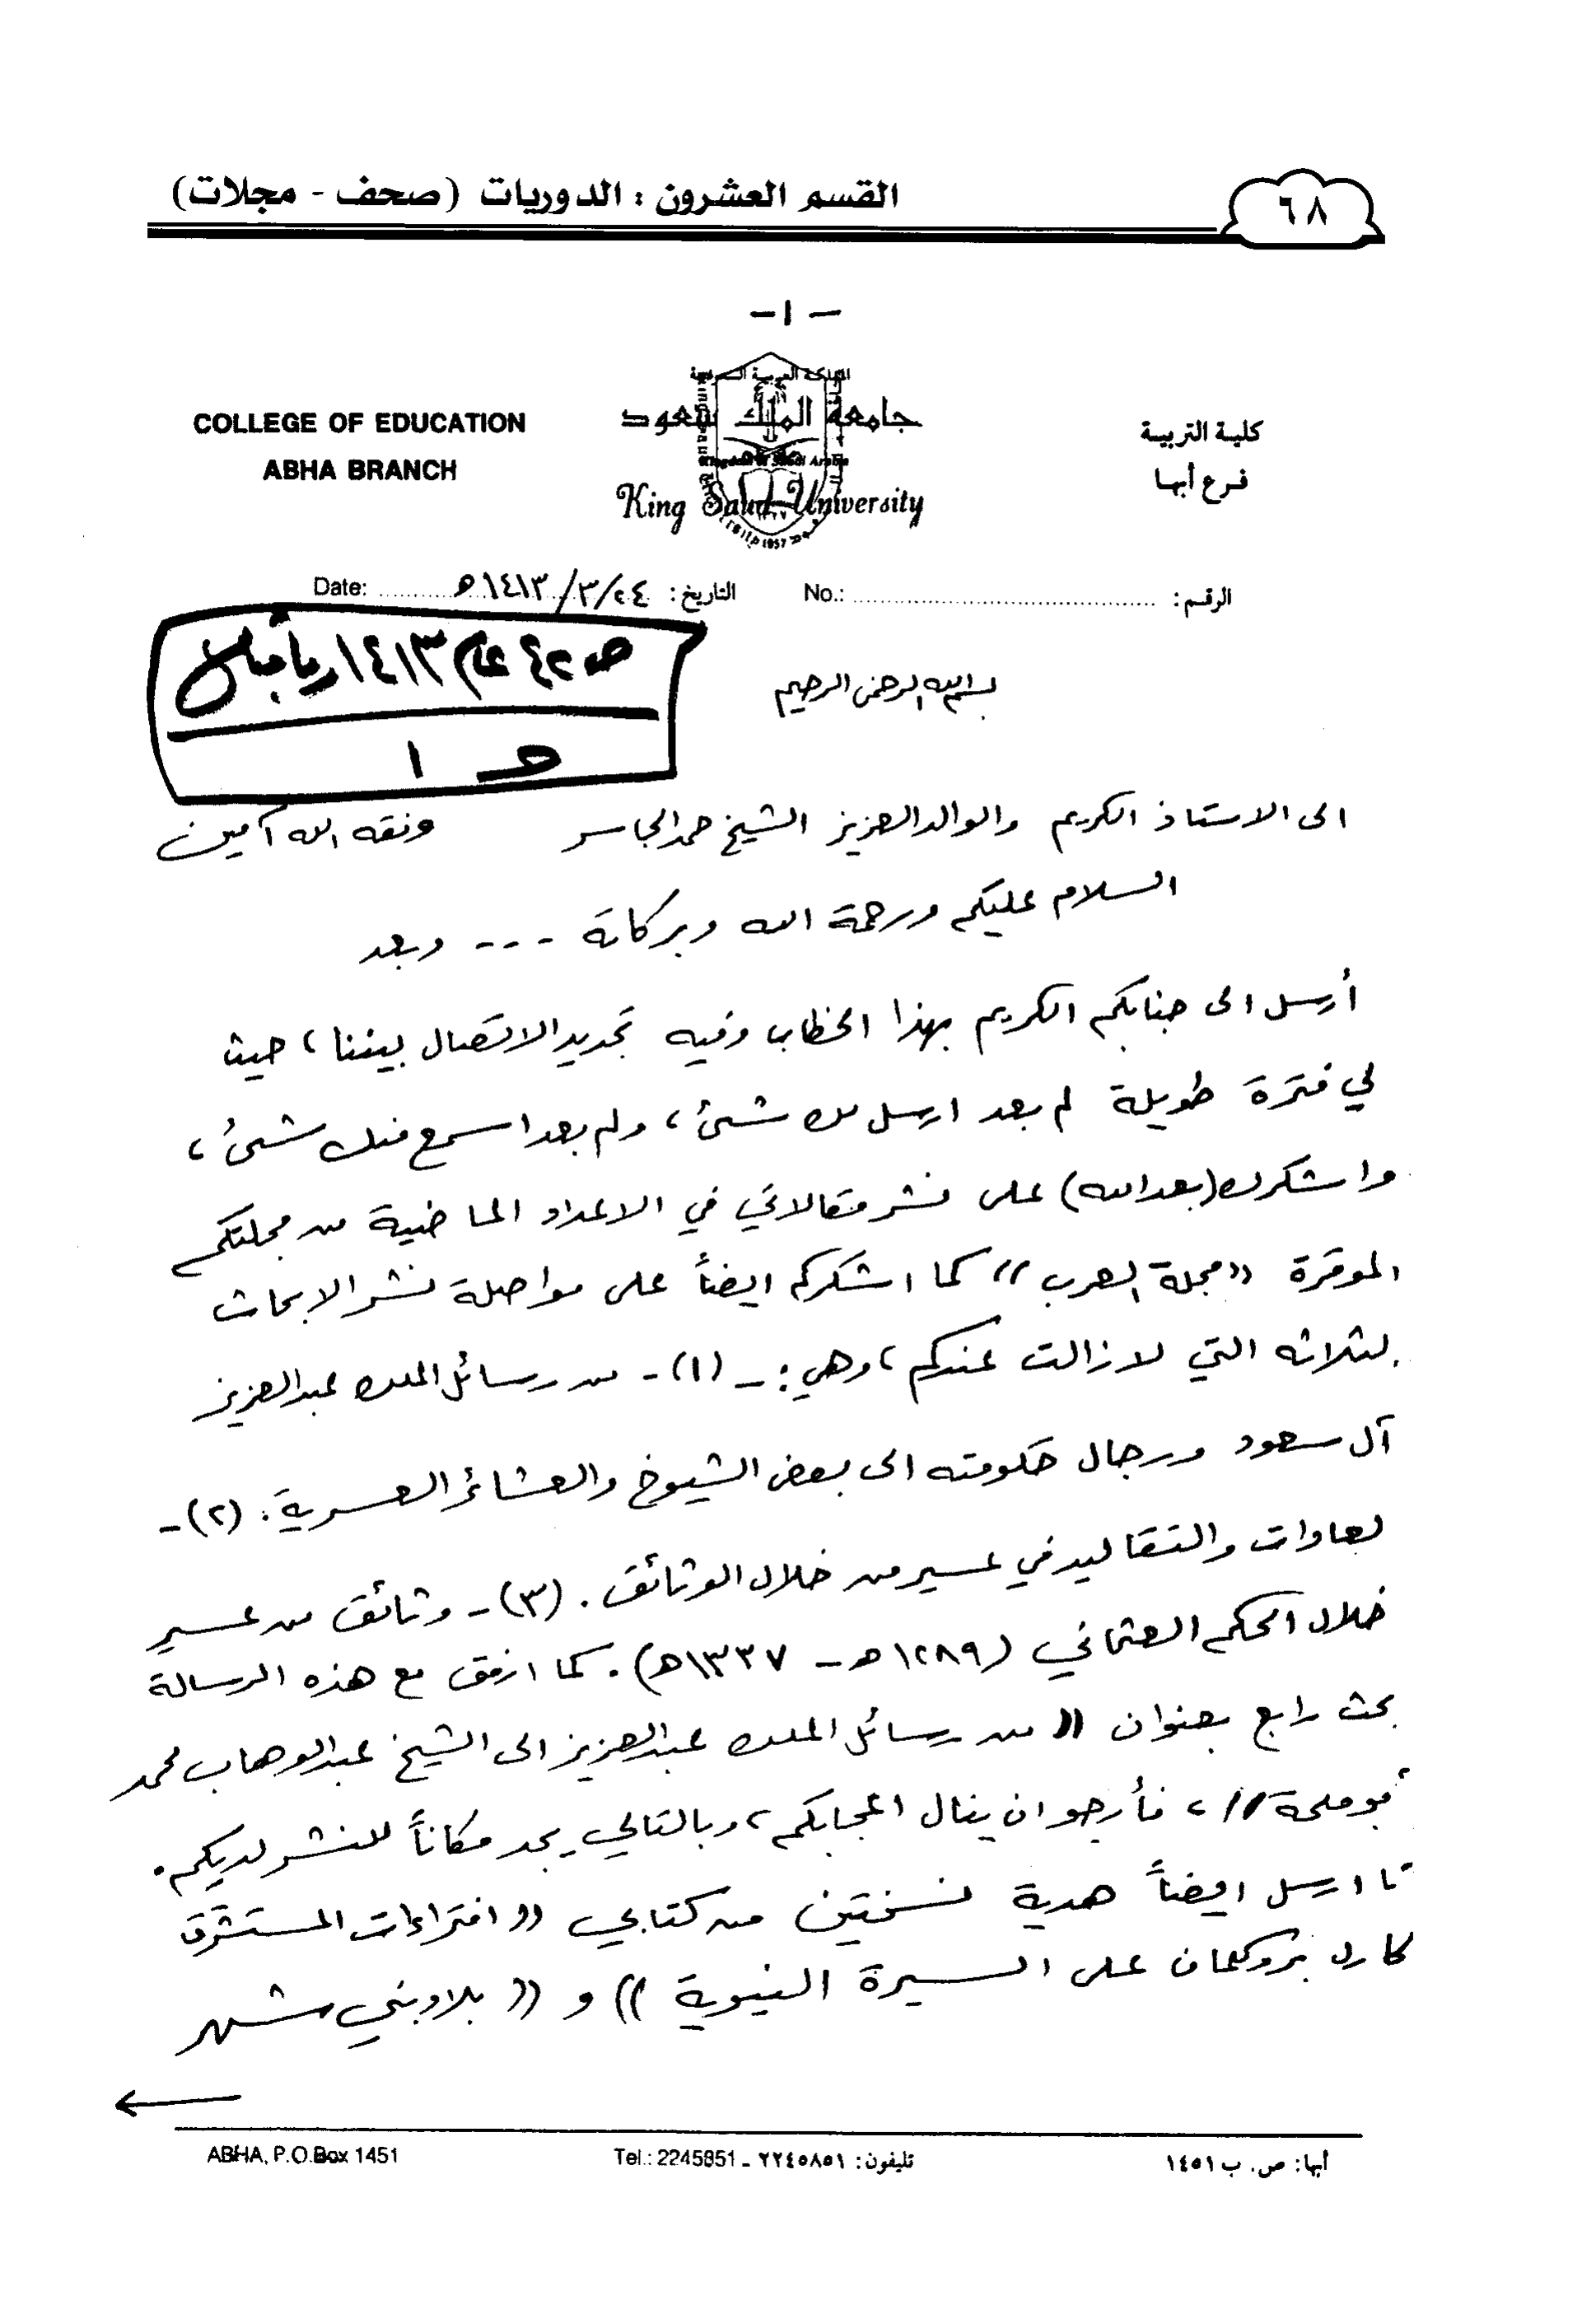 القسم العشرون : الدوريات (صحف - مجلات)
٦٨
- ١ -
COLLEGE OF EDUCATION
ABHA BRANCH
المملكة العربية السعودية
جامعة الملك سعود
King Saud University
كلية التربية
فرع أبها
الرقم : No.:
التاريخ : ٢٤/٣/١٤١٣هـ Date:
ص ٤٢ عام ١٤١٣
و ١
بسم الله الرحمن الرحيم
الى الاستاذ الكريم والوالد العزيز الشيخ حمد الجاسر وفقه الله آمين
السلام عليكم ورحمة الله وبركاته --- وبعد
أرسل الى جنابكم الكريم بهذا الخطاب وفيه تجديد الاتصال بيننا ، حيث
لي فترة طويلة لم بعد ارسل لك شيئ ، ولم بعد اسمع منك شيئ ،
واشكرك (بعد الله) على نشر مقالاتي في الاعداد الماضية من مجلتكم
الموقرة « مجلة العرب » كما اشكركم ايضاً على مواصلة نشر الابحاث
لثلاثه التي لازالت عندكم ، وهي :- (١)- من رسائل الملك عبدالعزيز
آل سعود ورجال حكومته الى بعض الشيوخ والعشائر العسيرية . (٢)-
لعادات والتقاليد في عسير من خلال الوثائق . (٣)- وثائق من عسير
خلال الحكم العثماني (١٢٨٩هـ - ١٣٣٧هـ) . كما ارفق مع هذه الرسالة
بحث رابع بعنوان « من رسائل الملك عبدالعزيز الى الشيخ عبدالوهاب محمد
أبو ملحة » ، فأرجو ان ينال اعجابكم ، وبالتالي يجد مكاناً للنشر لديكم .
ارسل ايضاً هدية نسختين من كتابي « افتراءات المستشرق
كارل بروكلمان على السيرة النبوية » و « بلاد بني شهر
أبها : ص. ب ١٤٥١
تليفون : ٢٢٤٥٨٥١ - Tel.: 2245851
ABHA, P.O.Box 1451